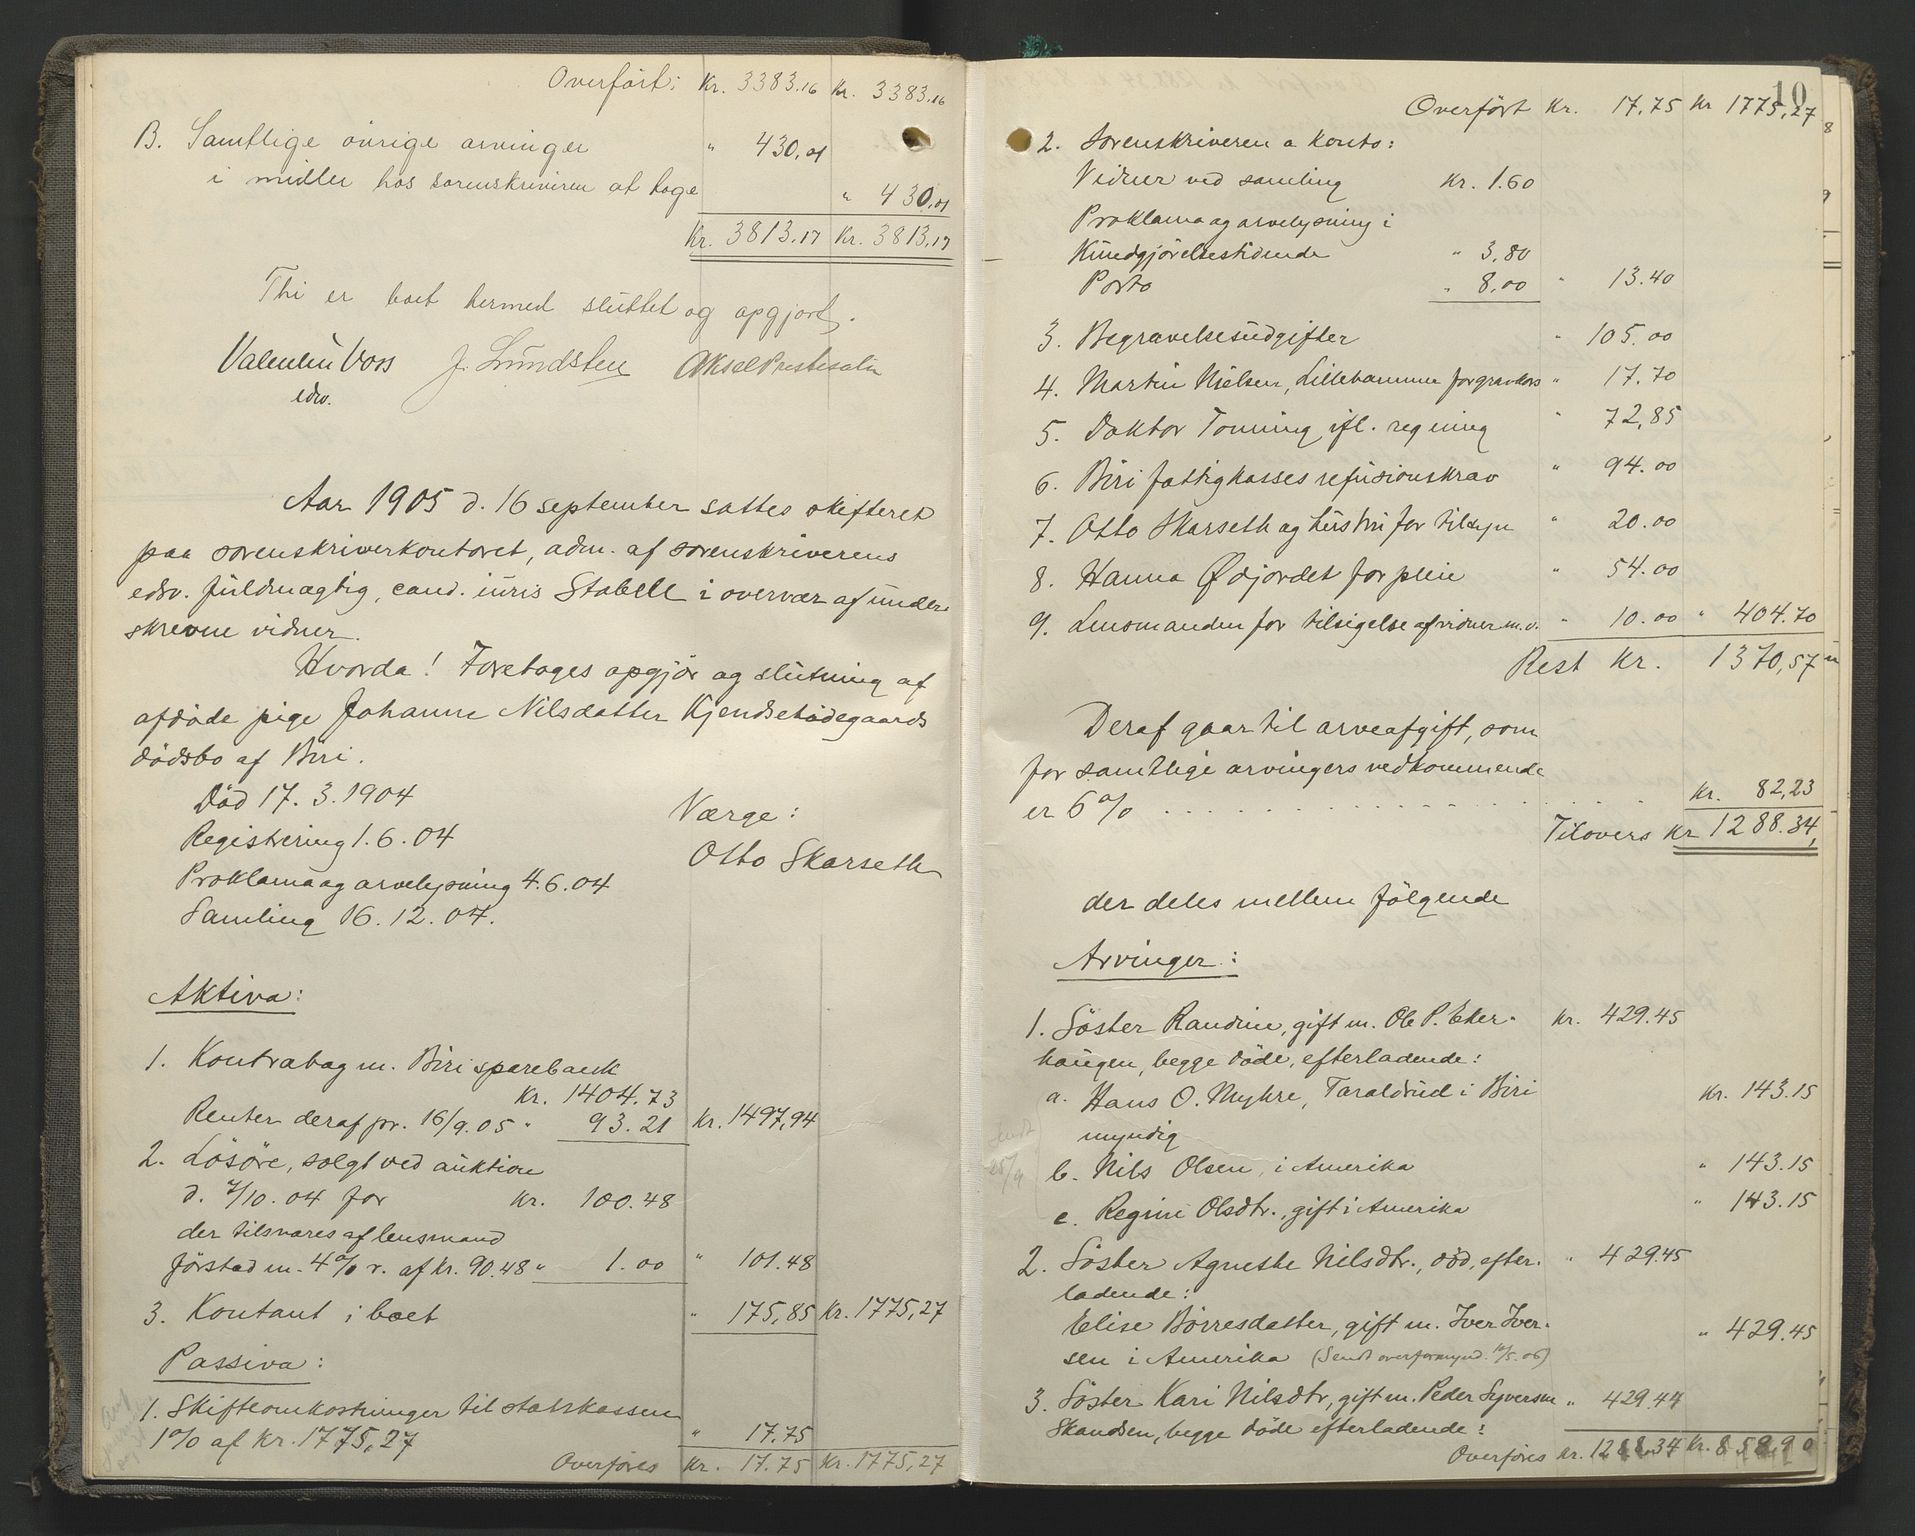 Overført: Kr. 3383.16 Kr. 3383.16
B. Samtlige øvrige arvinger " 430.01
i midler hos sorenskriveren at tage " 430.01
Kr. 3813.17 Kr. 3813.17
Thi er boet hermed sluttet og opgjort.
Valentin Voss J. Lundsten Aksel Prestesæter
edsv.
Aar 1905 d. 16 september sattes skifteret
paa sorenskriverkontoret, adm. af sorenskriverens
edsv. fuldmægtig, cand. iuris Stabell i overvær af under-
skrevne vidner.
Hvorda! Foretoges opgjør og slutning af
afdøde pige Johanne Nilsdatter Kjendsetødegaards
dødsbo af Biri.
Død 17.3.1904
Registrering 1.6.04
Proklama og arvelysning 4.6.04
Samling 16.12.04.
Værge:
Otto Skarseth
Aktiva:
1. Kontrabog m. Biri sparebank
Kr. 1404.73
Renter deraf pr. 16/9.05 " 93.21 Kr. 1497,94
2. Løsøre, solgt ved auktion
d. 7/10.04 for Kr. 100.48
der tilsvares af lensmand
Førstad m. 4% r. af kr. 90.48 " 1.00 " 101.48
3. Kontant i boet " 175,85 Kr. 1775,27
Passiva:
1. Skifteomkostninger til statskassen
1% af Kr. 1775,27 " 17.75
Overføres Kr. 17.75 Kr. 1775,27
10
Overført Kr. 17,75 Kr 1775,27
2. Sorenskriveren a konto:
Vidner ved samling Kr. 1.60
Proklama og arvelysning i
Kundgjørelsestidende " 3,80
Porto " 8,00 " 13.40
3. Begravelsesudgifter " 105.00
4. Martin Nielsen, Lillehammer for gravkors " 17.70
5. Doktor Tonning ifl. regning " 72,85
6. Biri fattigkasses refusionskrav " 94.00
7. Otto Skarseth og hustru for tilsyn " 20.00
8. Hanna Ødjordet for pleie " 54.00
9. Lensmanden for tilsigelse af vidner m.v. " 10.00 " 404.70
Rest Kr. 1370,57
Deraf gaar til arveafgift, som
for samtlige arvingers vedkommende
er 6% . . . . . . . . . . . . . . . Kr. 82,23
Tilovers Kr 1288.34,
der deles mellem følgende
Arvinger:
1. Søster Randine, gift m. Ole P. Eker- Kr. 429.45
haugen, begge døde, efterladende:
a. Hans O. Myhre, Taraldrud i Biri Kr. 143.15
myndig
Sendt
25/9
b. Nils Olsen, i Amerika " 143.15
c. Regine Olsdtr., gift i Amerika " 143.15
2. Søster Agnethe Nilsdtr., død, efter- " 429.45
ladende:
Elise Børresdatter, gift m. Iver Iver- " 429.45
sen i Amerika (Sendt overformynd. 10/5.06)
3. Søster Kari Nilsdtr, gift m. Peder Syversen " 429.44
Skandsen, begge døde efterladende:
Overføres Kr. 1288.34 Kr. 858,90